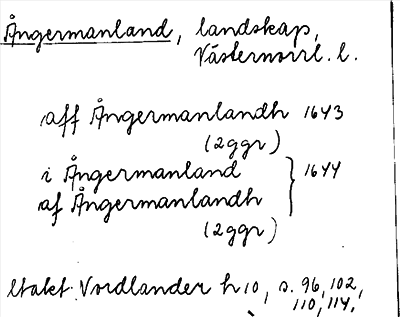 Ångermanland, landskap,
Västernorrl. l.
aff Ångermanlandh 1643
(2ggr)
i Ångermanland } 1644
af Ångermanlandh
(2ggr)
Itakt. Nordlander h10, s. 96, 102,
110, 114.